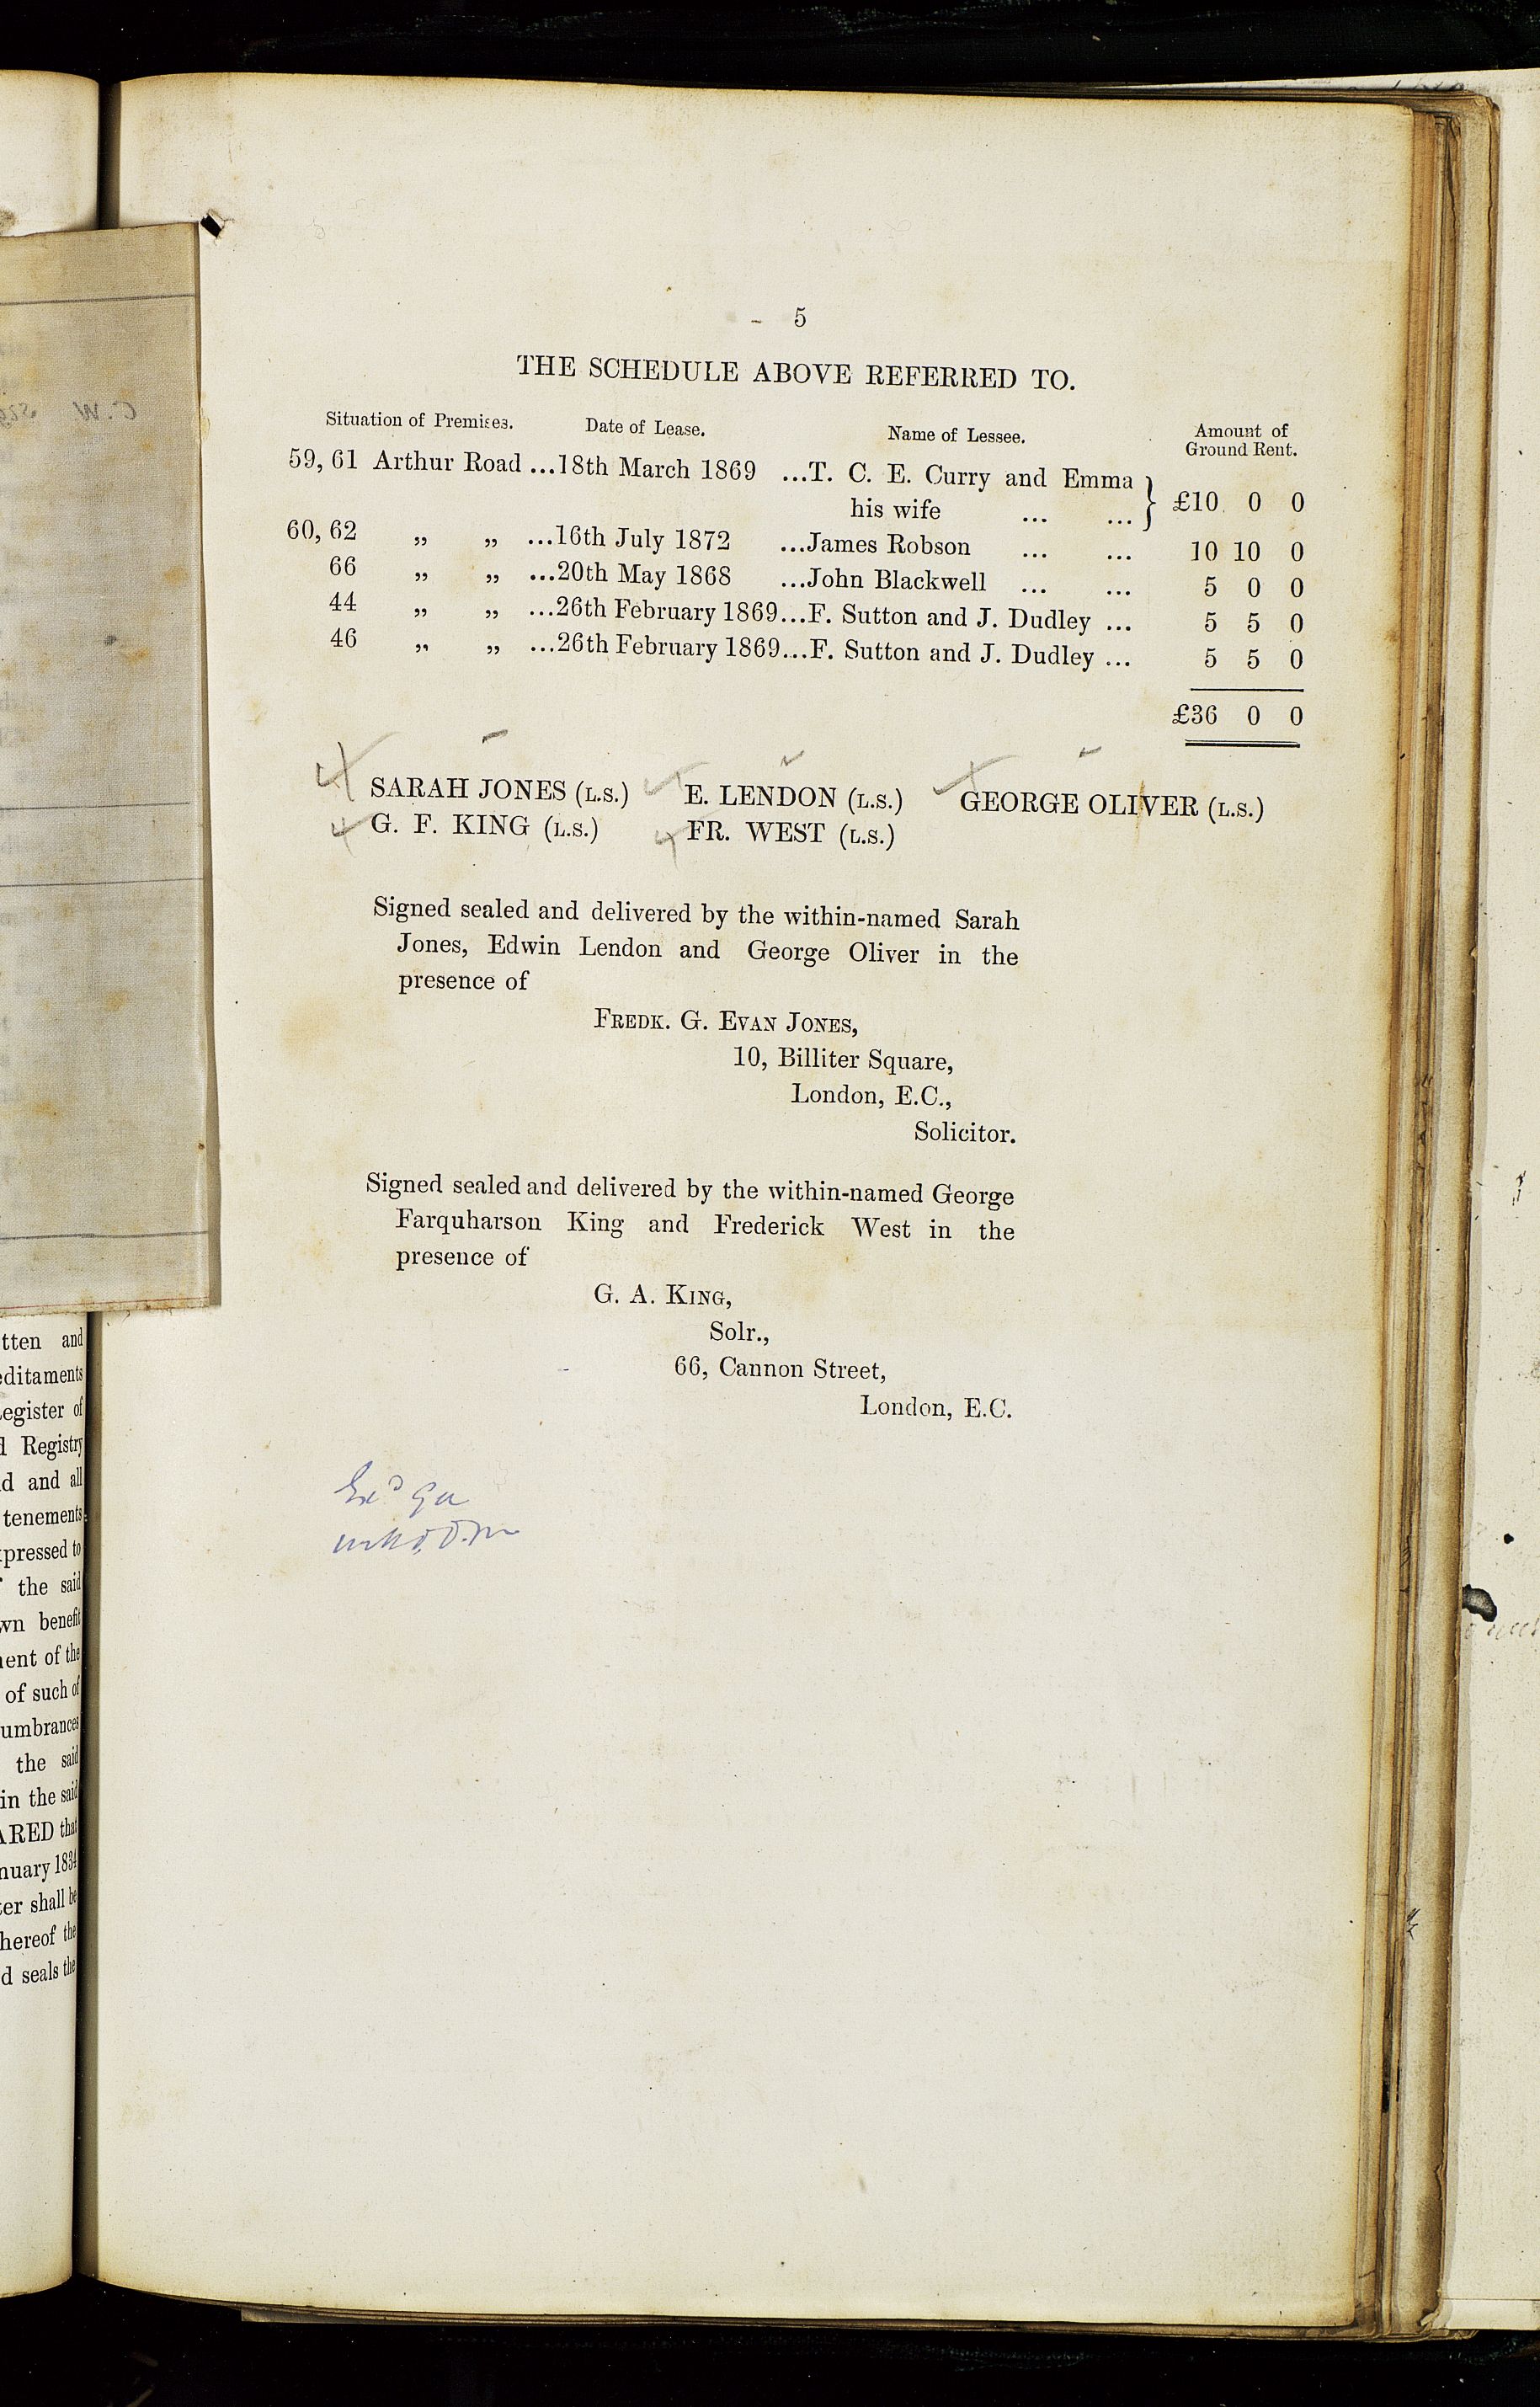 5
THE SCHEDULE ABOVE REFERRED TO.
Situation of Premises. Date of Lease. Name of Lessee. Amount of Ground Rent.
59, 61 Arthur Road ...18th March 1869 ...T. C. E. Curry and Emma
his wife ... ... } £10 0 0
60, 62 „ „ ...16th July 1872 ...James Robson ... ... 10 10 0
66 „ „ ...20th May 1868 ...John Blackwell ... ... 5 0 0
44 „ „ ...26th February 1869...F. Sutton and J. Dudley ... 5 5 0
46 „ „ ...26th February 1869...F. Sutton and J. Dudley ... 5 5 0
£36 0 0
SARAH JONES (L.S.) E. LENDON (L.S.) GEORGE OLIVER (L.S.)
G. F. KING (L.S.) FR. WEST (L.S.)
Signed sealed and delivered by the within-named Sarah
Jones, Edwin Lendon and George Oliver in the
presence of
FREDK. G. EVAN JONES,
10, Billiter Square,
London, E.C.,
Solicitor.
Signed sealed and delivered by the within-named George
Farquharson King and Frederick West in the
presence of
G. A. KING,
Solr.,
66, Cannon Street,
London, E.C.
tten and
editaments
egister of
d Registry
d and all
tenements
pressed to
the said
wn benefit
ent of the
of such of
umbrances
the said
in the said
ARED that
nuary 1834
er shall be
hereof the
d seals the